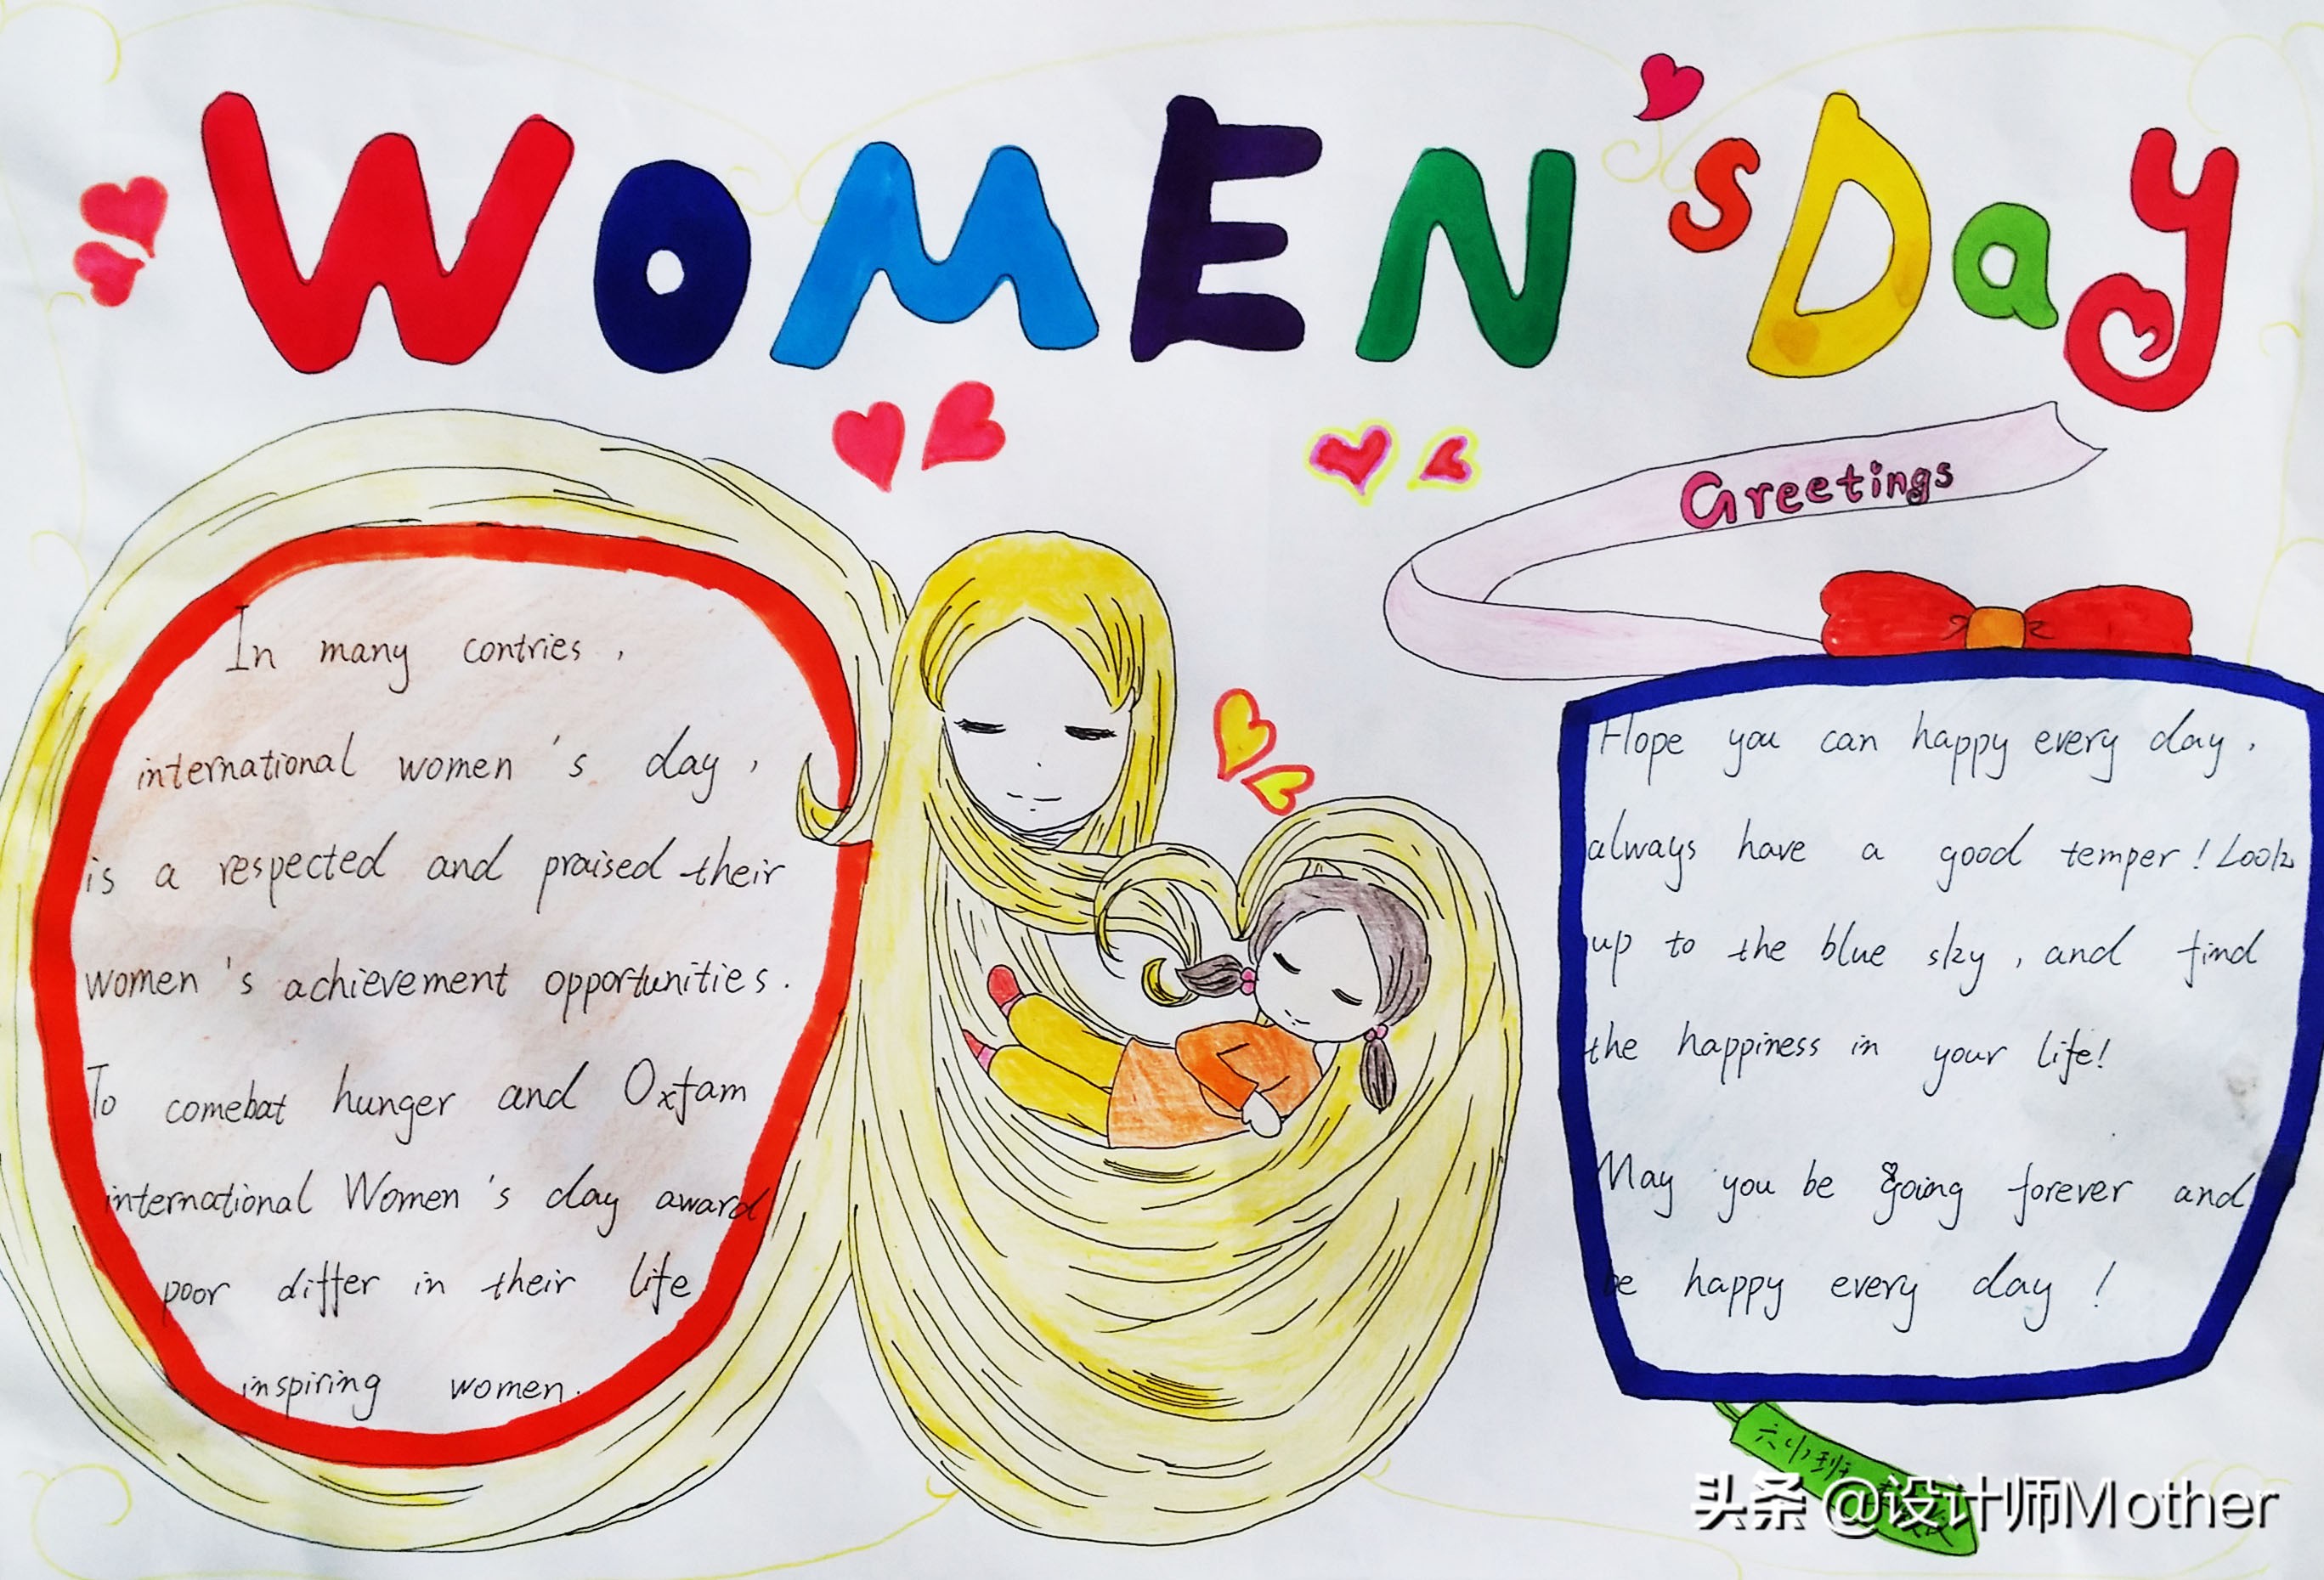 WOMEN'S Day
Greetings
In many contries,
international women's day,
is a respected and praised their
women's achievement opportunities.
To comebat hunger and Oxfam
international Women's day award
poor differ in their life
inspiring women.
Hope you can happy every day.
always have a good temper! Look
up to the blue sky, and find
the happiness in your life!
May you be going forever and
be happy every day!
头条 @设计师Mother